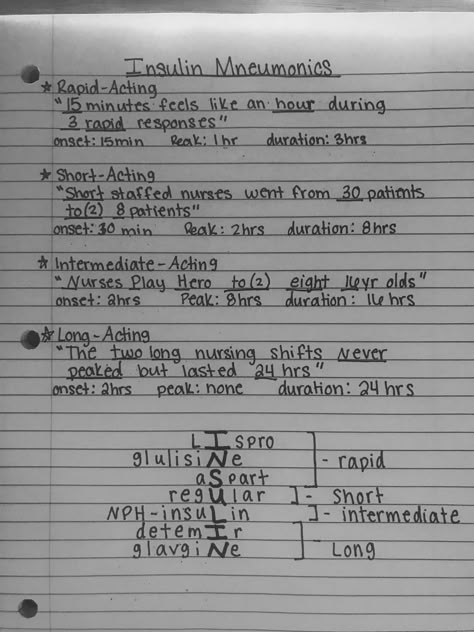 Insulin Mneumonics
★ Rapid-Acting
"15 minutes feels like an hour during
3 rapid responses"
onset: 15min Peak: 1hr duration: 3hrs
★ Short-Acting
"Short staffed nurses went from 30 patients
to(2) 8 patients"
onset: 30 min Peak: 2hrs duration: 8hrs
★ Intermediate-Acting
"Nurses Play Hero to(2) eight 16yr olds"
onset: 2hrs Peak: 8hrs duration: 16 hrs
★ Long-Acting
"The two long nursing shifts Never
peaked but lasted 24 hrs"
onset: 2hrs peak: none duration: 24 hrs
LIspro
glulisiNe - rapid
aSpart
regUlar - Short
NPH-insuLin - intermediate
detemIr
glavgiNe - Long